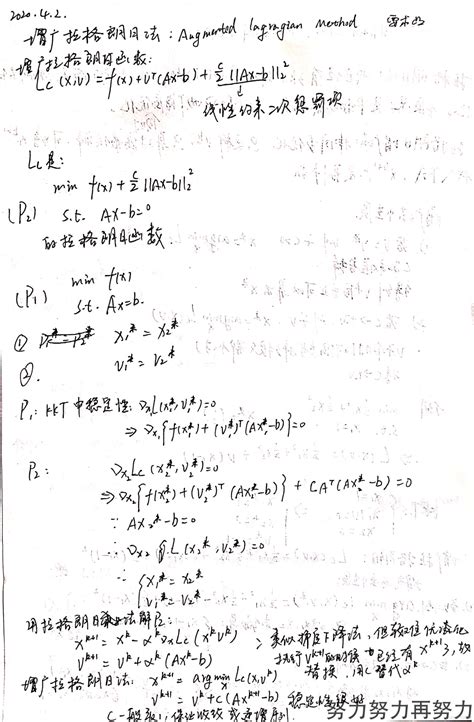 2020.4.2.
增广拉格朗日法：Augmented lagragian method
增广拉格朗日函数：
Lc(x,v)=f(x)+vᵀ(Ax-b)+c/2||Ax-b||₂²
↓
线性约束二次惩罚项
Lc是：
min f(x)+c/2||Ax-b||₂²
(P₂) s.t. Ax-b=0
的拉格朗日函数.
min f(x)
(P₁) s.t. Ax=b.
① x₁*=x₂*
②. v₁*=v₂*
P₁: KKT中稳定性: ∇xL(x₁*,v₁*)=0
⇒∇x₁{f(x₁*)+(v₁*)ᵀ(Ax₁*-b)}=0
P₂: ∇x₂Lc(x₂*,v₂*)=0
⇒∇x₂{f(x₂*)+(v₂*)ᵀ(Ax₂*-b)}+CAᵀ(Ax₂*-b)=0
∵ Ax₂*-b=0
∴ ∇x₂ L(x₂*,v₂*)=0
∴ {x₁*=x₂*
v₁*=v₂*
用拉格朗日法解:
xᵏ⁺¹=xᵏ-αᵏ∇xLc(xᵏ,vᵏ) 类似梯度下降法，但
vᵏ⁺¹=vᵏ+αᵏ(Axᵏ-b) 执行vᵏ⁺¹的时候已经有xᵏ⁺¹了，故
替换，用c替代αᵏ
增广拉格朗日法: xᵏ⁺¹=argmin Lc(x,vᵏ)
vᵏ⁺¹=vᵏ+c(Axᵏ⁺¹-b)
c一般取1，保证收敛或逐渐增加
努力努力再努力